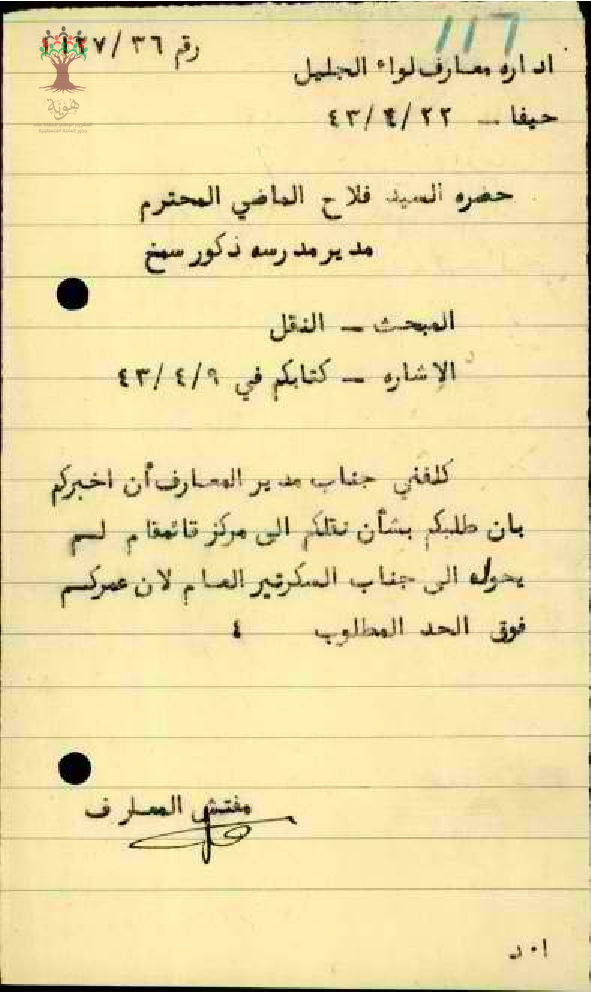 117
رقم ٣٦/
اداره معارف لواء الجليل
حيفا — ٤٣/٤/٢٢
حضره السيد فلاح الماضي المحترم
مدير مدرسه ذكور سمخ
المبحث — النقل
الإشاره — كتابكم في ٤٣/٤/٩
كلفني جناب مدير المعارف أن اخبركم
بان طلبكم بشأن نقلكم الى مركز قائمقام لم
يحوله الى جناب السكرتير العام لان عمركم
فوق الحد المطلوب ٤
مفتش المعارف
ا٠د
هوية